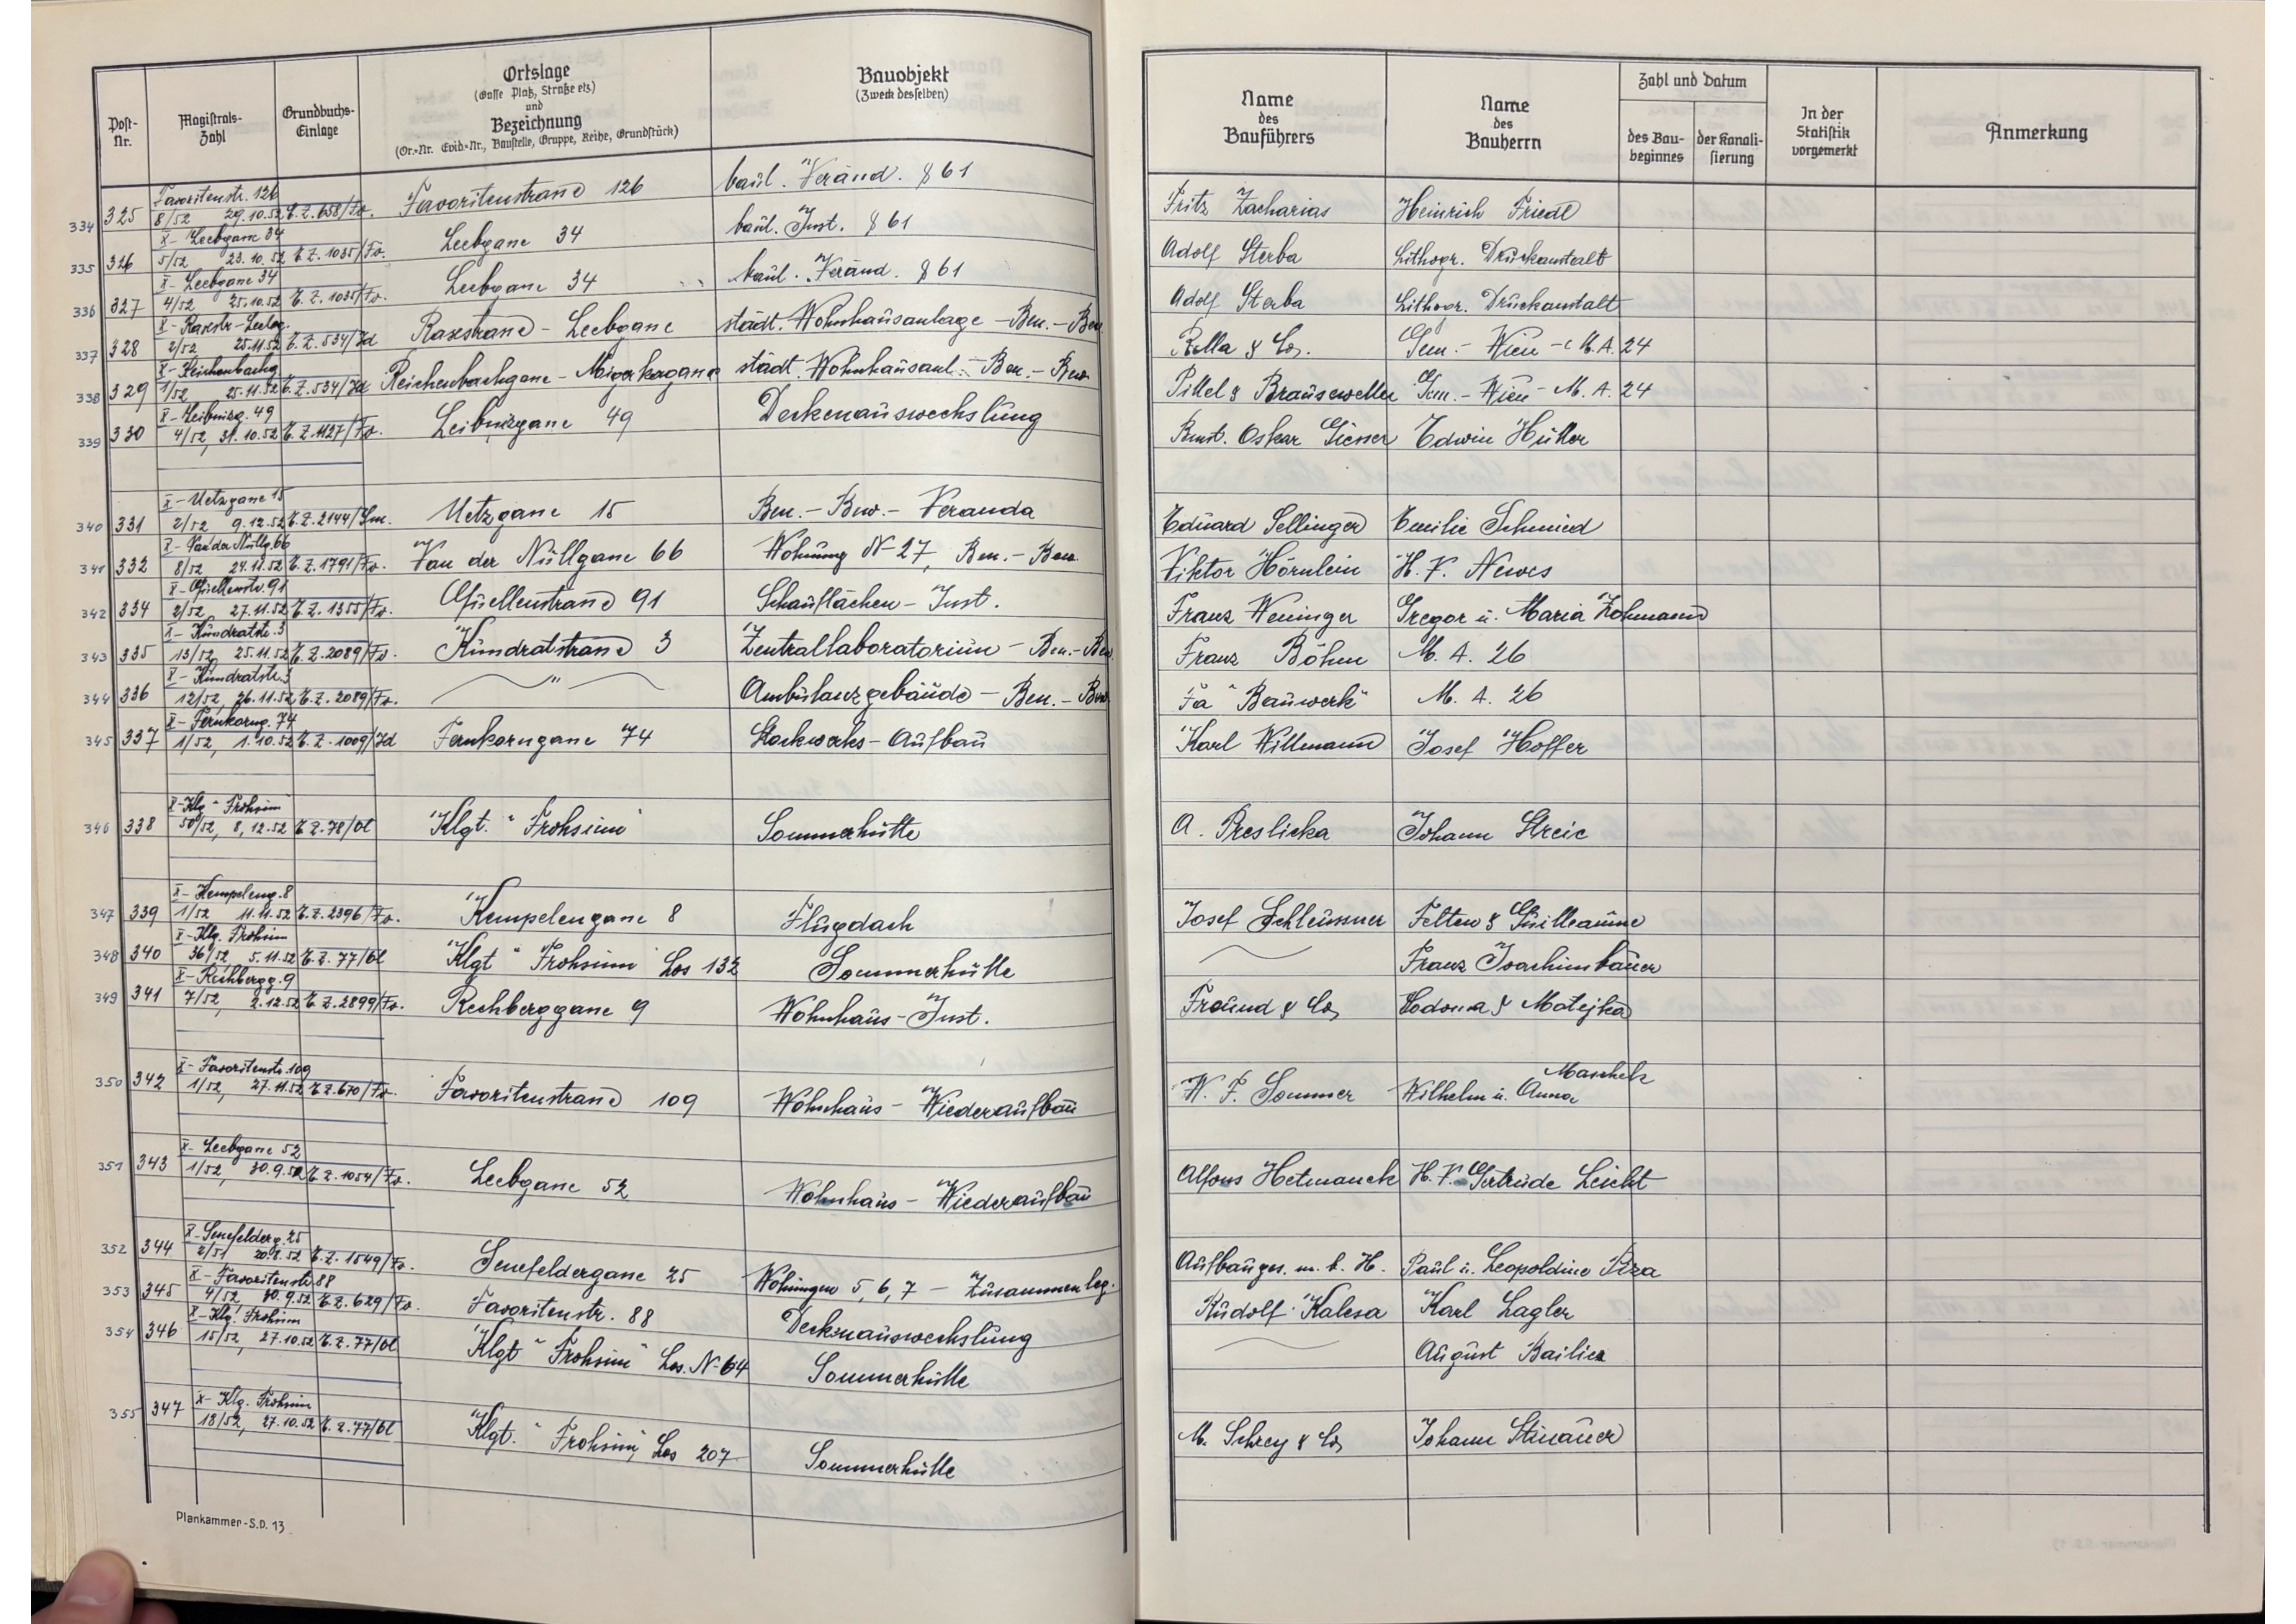 Post-Nr. Magistrats-Zahl Grundbuchs-Einlage Ortslage (Gasse Platz, Straße etz) und Bezeichnung (Or.-Nr. Evid.-Nr., Baustelle, Gruppe, Reihe, Grundstück) Bauobjekt (Zweck desselben) Name des Bauführers Name des Bauherrn Zahl und Datum des Bau-beginnes der Kanali-sierung In der Statistik vorgemerkt Anmerkung
Favoritenstr. 126
334 325 8/52 29.10.52 E.Z. 658/Fv. Favoritenstrasse 126 baul. Veränd. § 61 Fritz Zacharias Heinrich Friedl
X- Leebgasse 34
335 326 5/52 23.10.52 E.Z. 1035/Fv. Leebgasse 34 baul. Inst. § 61 Adolf Sterba Lithogr. Druckanstalt
X- Leebgasse 34
336 327 4/52 25.10.52 E.Z. 1035/Fv. Leebgasse 34 baul. Veränd. § 61 Adolf Sterba Lithogr. Druckanstalt
X- Raxstr-Leebg.
337 328 2/52 25.11.52 E.Z. 534/Id Raxstrasse - Leebgasse städt. Wohnhausanlage - Ben. - Bew. Rella & Co. Gem. - Wien - M.A. 24
X- Reichenbachg
338 329 1/52 25.11.52 E.Z. 534/Id Reichenbachgasse - Migerkagasse städt. Wohnhausanl. - Ben. - Bew. Pittel & Brausewetter Gem. - Wien - M.A. 24
X- Leibnizg. 49
339 330 4/52, 31.10.52 E.Z. 1127/Fv. Leibnizgasse 49 Deckenauswechslung Bmst. Oskar Giesser Edwin Hütter
X- Uetzgasse 15
340 331 2/52 9.12.52 E.Z. 2144/Sm. Uetzgasse 15 Ben. - Bew. - Veranda Eduard Sellinger Emilie Schmied
X- Van der Nüllg. 66
341 332 8/52 24.11.52 E.Z. 1791/Fv. Van der Nüllgasse 66 Wohnung N- 27, Ben. - Bew. Viktor Hörnlein H.V. Newes
X- Quellenstr. 91
342 334 2/52, 27.11.52 E.Z. 1355/Fv. Quellenstrasse 91 Schauflächen - Inst. Franz Weninger Gregor u. Maria Zohmann
X- Kundratstr. 3
343 335 13/52, 25.11.52 E.Z. 2089/Fv. Kundratstrasse 3 Zentrallaboratorium - Ben. - Bew. Franz Böhm M.A. 26
X- Kundratstr. 3
344 336 12/52, 26.11.52 E.Z. 2089/Fv. " Ambulanzgebäude - Ben. - Bew. Fa "Bauwerk" M.A. 26
X- Fernkorng. 74
345 337 1/52, 1.10.52 E.Z. 1009/Id Fernkorngasse 74 Stockwerks - Aufbau Karl Willmann Josef Hoffer
X- Klg "Frohsinn
346 338 50/52, 8.12.52 E.Z. 78/Ol Klgt. "Frohsinn" Sommerhütte A. Preslicka Johann Streic
X- Kempeleng. 8
347 339 1/52 11.11.52 E.Z. 2396/Fv. Kempelengasse 8 Flugdach Josef Schleussner Felten & Guilleaume
X- Klg. Frohsinn
348 340 36/52, 5.11.52 E.Z. 77/Ol Klgt "Frohsinn" Los 132 Sommerhütte Franz Joachimbauer
X- Rechbergg. 9
349 341 7/52, 2.12.52 E.Z. 2899/Fv. Rechberggasse 9 Wohnhaus - Inst. Freund & Co, & Matejka
X- Favoritenstr. 109
350 342 1/52, 27.11.52 E.Z. 670/Fv. Favoritenstrasse 109 Wohnhaus - Wiederaufbau W. F. Sommer Wilhelm u. Anna Maschek
X- Leebgasse 52
351 343 1/52, 30.9.52 E.Z. 1054/Fv. Leebgasse 52 Wohnhaus - Wiederaufbau Alfons Hetmanek H.V. Gertrude Leicht
X- Senefelderg. 25
352 344 2/51 20.8.52 E.Z. 1549/Fv. Senefeldergasse 25 Wohnungen 5, 6, 7 - Zusammenleg. Aufbauges. m. b. H. Paul u. Leopoldine
X- Favoritenstr 88
353 345 4/52 30.9.52 E.Z. 629/Fv. Favoritenstr. 88 Deckenauswechslung Rudolf Kalesa Karl Lagler
X- Klg. Frohsinn
354 346 15/52, 27.10.52 E.Z. 77/Ol Klgt "Frohsinn" Los. N- 64 Sommerhütte August
X- Klg. Frohsinn
355 347 18/52, 27.10.52 E.Z. 77/Ol Klgt. "Frohsinn, Los 207 Sommerhütte M. Schrey & Co, Johann Stinauer
Plankammer-S.D. 13